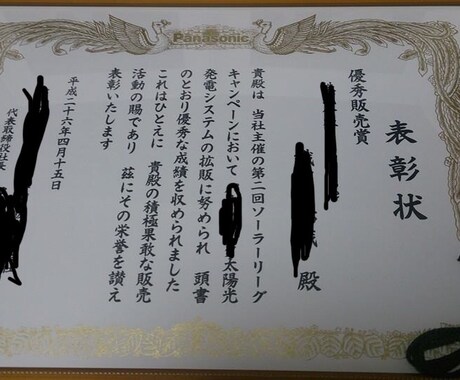 Panasonic
表彰状
優秀販売賞
殿
貴殿は 当社主催の第二回ソーラーリーグ
キャンペーンにおいて 太陽光
発電システムの拡販に努められ 頭書
のとおり優秀な成績を収められました
これはひとえに 貴殿の積極果敢な販売
活動の賜であり 茲にその栄誉を讃え
表彰いたします
平成二十六年四月十五日
代表取締役社長